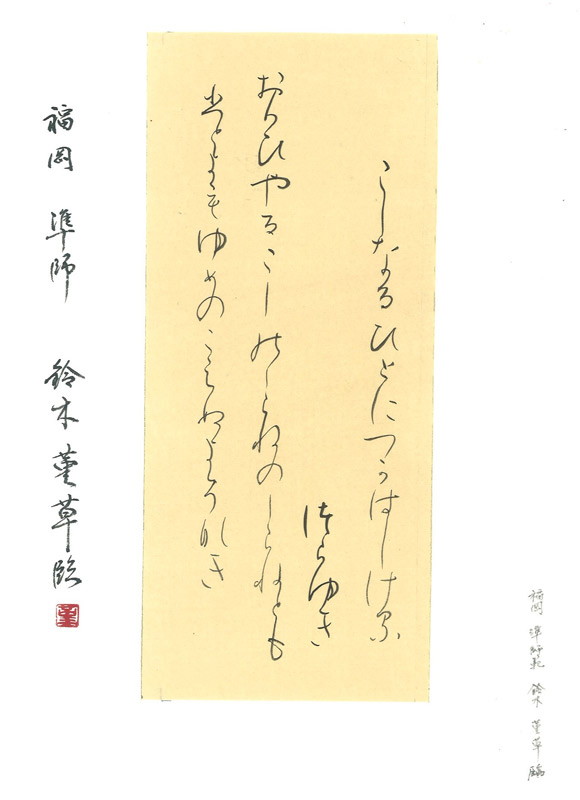 こしなるひとにつかはしける
つらゆき
おもひやるこしのしらねのしらねとも
ひとよもゆめのこえぬよそなき
福岡 準師 鈴木菫草臨
菫
福岡 準師範 鈴木 菫草 臨